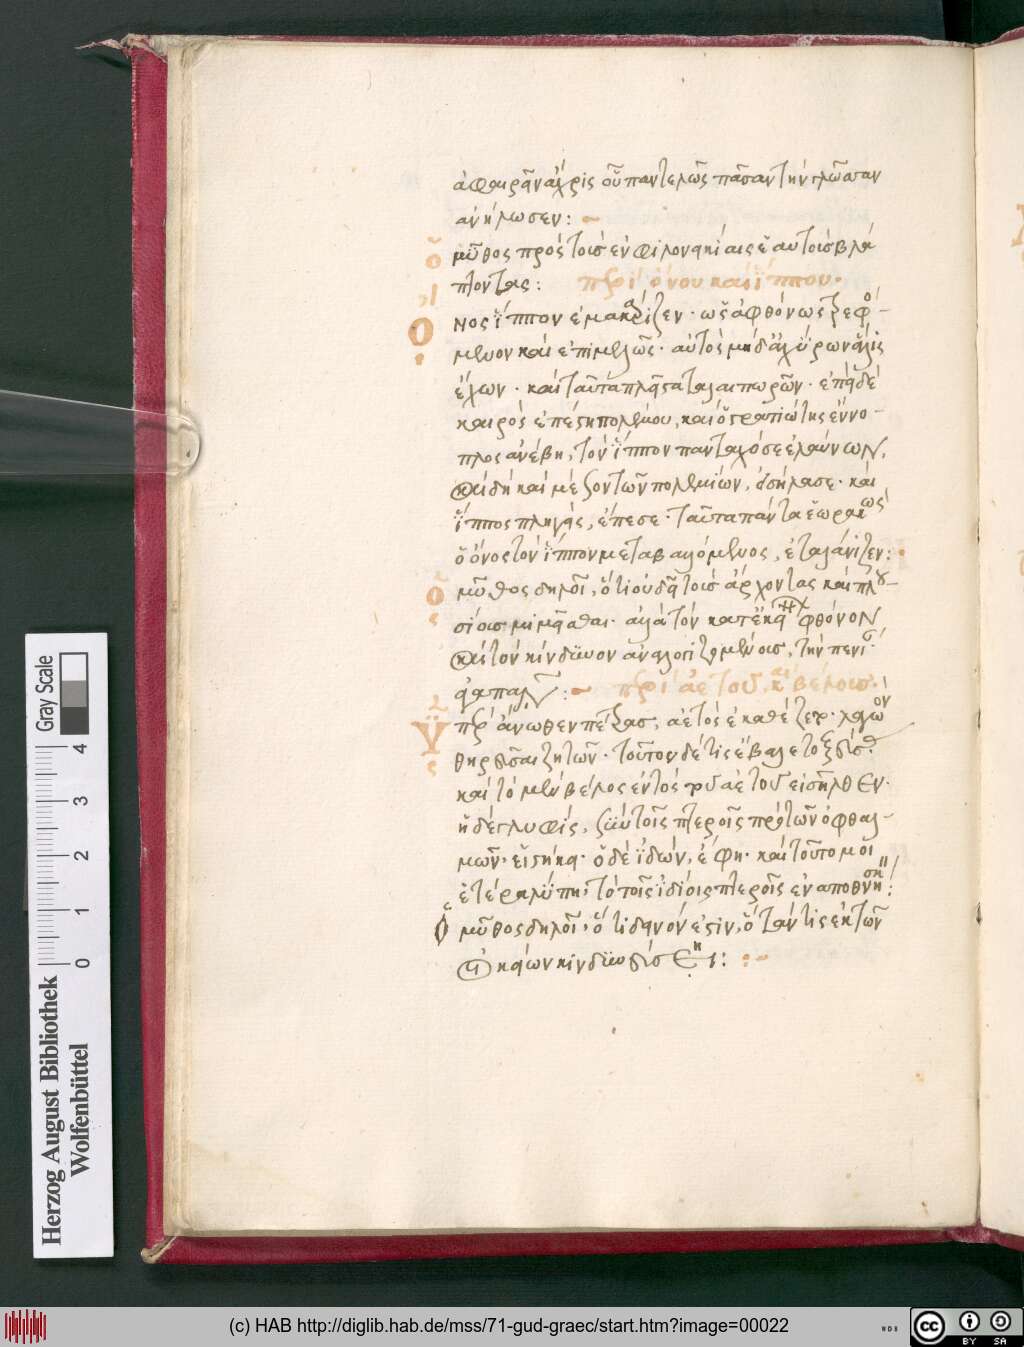 ἀφαιρῶν ἄχρις οὗ παντελῶς πᾶσαν τὴν γλῶσσαν
ἀνήλωσεν:
ὁ μῦθος πρὸς τοὺς ἐν φιλονεικίαις ἑαυτοὺς βλά
πτοντας: περὶ ὄνου καὶ ἵππου.
Ὄνος ἵππον ἐμακάριζεν· ὡς ἀφθόνως τρεφό-
μενον καὶ ἐπιμελῶς· αὐτὸς μηδ' ἀχύρων ἅλις
ἔχων· καὶ ταῦτα πλεῖστα ταλαιπωρῶν· ἐπεὶ δὲ
καιρὸς ἐπέστη πολέμου, καὶ ὁ στρατιώτης ἔνο-
πλος ἀνέβη, τὸν ἵππον πανταχόσε ἐλαύνων,
καὶ δὴ καὶ μέσον τῶν πολεμίων, εἰσήλασε· καὶ
ἵππος πληγεὶς, ἔπεσε· ταῦτα πάντα ἑωρακὼς
ὁ ὄνος τὸν ἵππον μεταβαλόμενος, ἐταλάνιζεν:
ὁ μῦθος δηλοῖ, ὅτι οὐ δεῖ τοὺς ἄρχοντας καὶ πλου-
σίους μιμεῖσθαι· ἀλλὰ τὸν κατ' ἐκείνων φθόνον
καὶ τὸν κίνδυνον ἀναλογιζομένους, τὴν πενίαν
ἀγαπᾶν: περὶ ἀετοῦ καὶ βέλους.
Ὑπεράνωθεν πέτρας, ἀετὸς ἐκαθέζετο· λαγωὸν
θηρεῦσαι ζητῶν· τοῦτον δέ τις ἔβαλε τοξεύσας·
καὶ τὸ μὲν βέλος ἐντὸς τοῦ ἀετοῦ εἰσῆλθεν·
ἡ δὲ γλυφὶς, σὺν τοῖς πτεροῖς πρὸ τῶν ὀφθαλ-
μῶν· εἱστήκει· ὁ δὲ ἰδὼν, ἔφη· καὶ τοῦτό μοι
ἑτέρα λύπη, τὸ τοῖς ἰδίοις πτεροῖς ἐναποθνήσκειν:
ὁ μῦθος δηλοῖ, ὅτι δεινόν ἐστιν, ὅταν τις ἐκ τῶν
οἰκείων κινδυνεύσῃ:
Gray Scale
4 3 2 1 0
Herzog August Bibliothek
Wolfenbüttel
(c) HAB http://diglib.hab.de/mss/71-gud-graec/start.htm?image=00022
WDB
cc BY SA